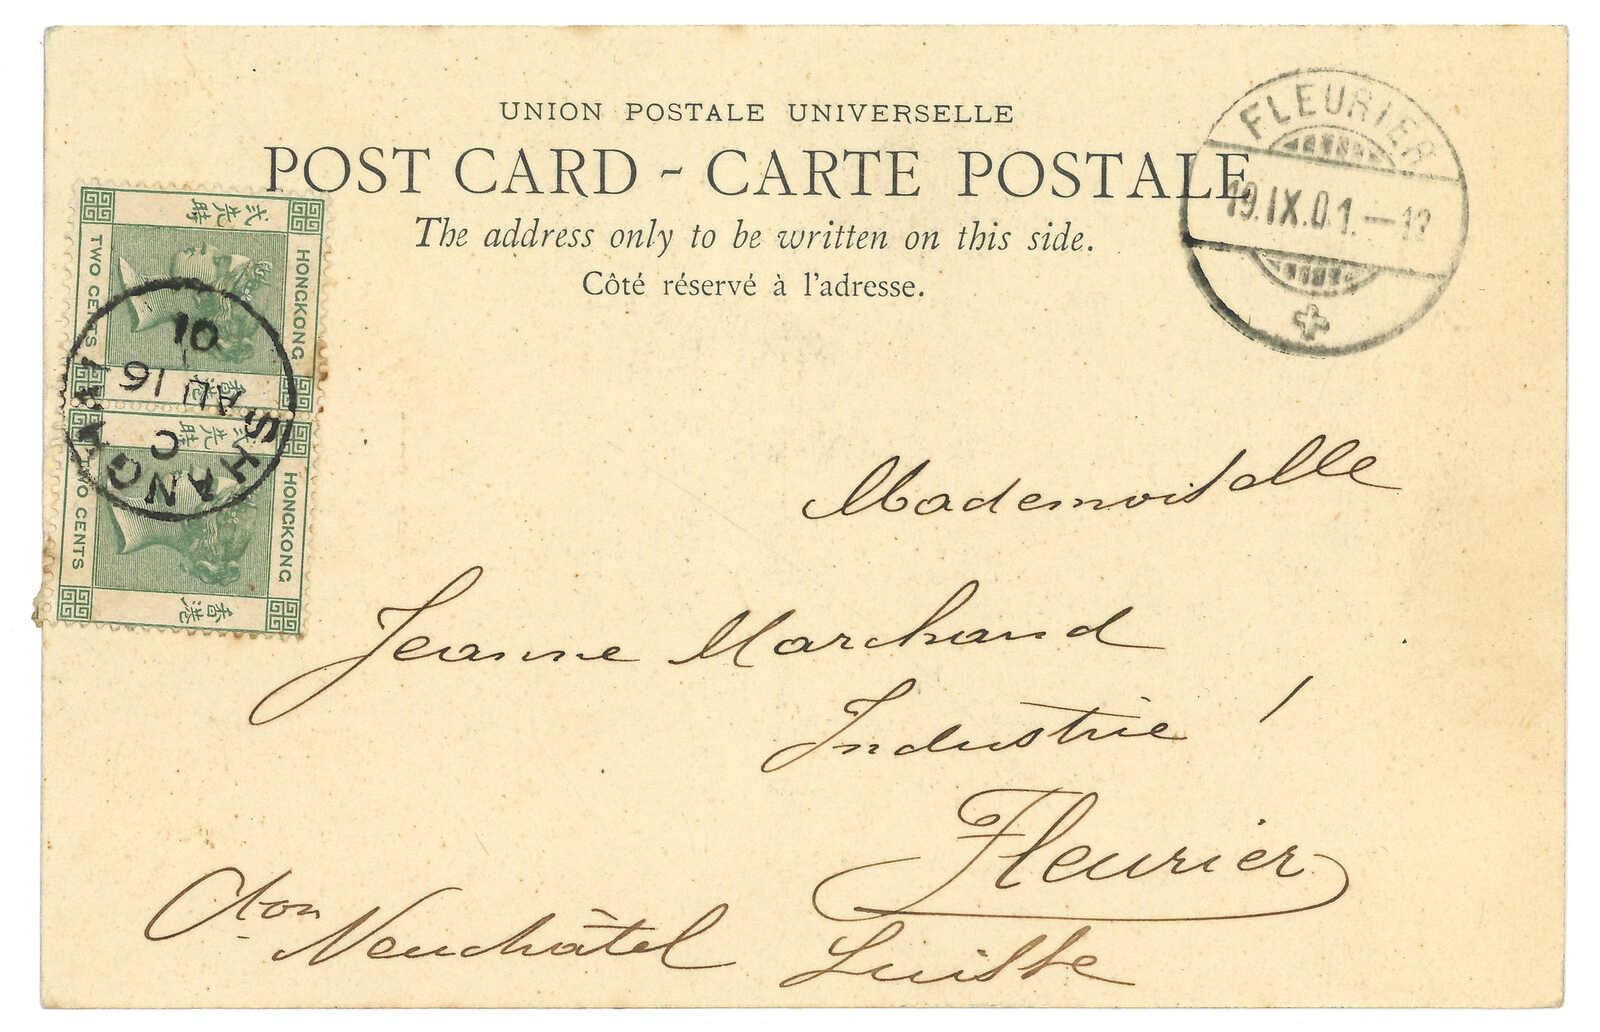 UNION POSTALE UNIVERSELLE
POST CARD - CARTE POSTALE
The address only to be written on this side.
Côté réservé à l'adresse.
FLEURIER
19.IX.01.—12
弍先時
HONGKONG
TWO CENTS
香港
弍先時
HONGKONG
TWO CENTS
香港
SHANGHAI
C
AU 16
01
Mademoiselle
Jeanne Marchand
Industrie 1
Fleurier
Cton Neuchâtel
Suisse